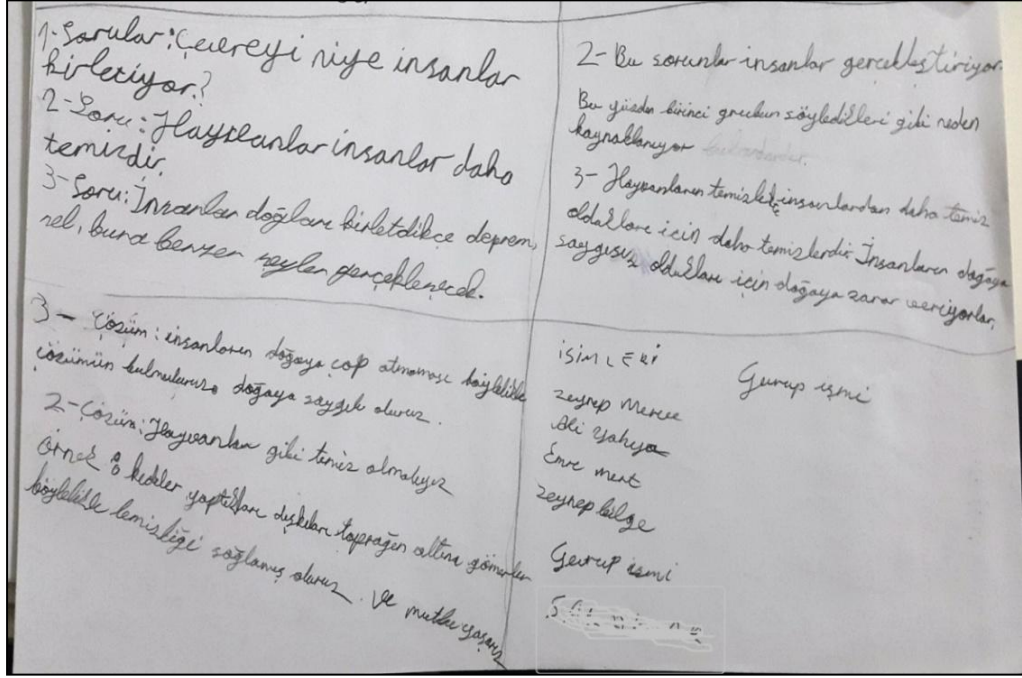 1-Sorular: Çevreyi niye insanlar
kirletiyor?
2-Soru: Hayvanlar insanlar daha
temizdir.
3-Soru: İnsanlar doğları kirletdikçe deprem,
sel, buna benzer şeyler gerçeklenecek.
2- Bu sorunlar insanlar gerçekleştiriyor.
Bu yüzden birinci grubun söyledikleri gibi neden
kaynaklanıyor
3- Hayvanların temizlik insanlardan daha temiz
oldukları için daha temizlerdir. İnsanların doğaya
saygısız oldukları için doğaya zarar veriyorlar.
3- Çözüm: insanların doğaya çöp atmaması böylelikle
çözümün bulmuluruz doğaya saygılı oluruz.
2-Çözüm: Hayvanlar gibi temiz olmalıyız
Örnek: kediler yaptıkları dışkıları toprağın altına gömerler
böylelikle temizliği sağlamış oluruz. Ve mutlu yaşarız
İSİMLERİ
Zeynep Merve
Ali Yahya
Emre mert
Zeynep bilge
Gurup ismi
Gurup ismi